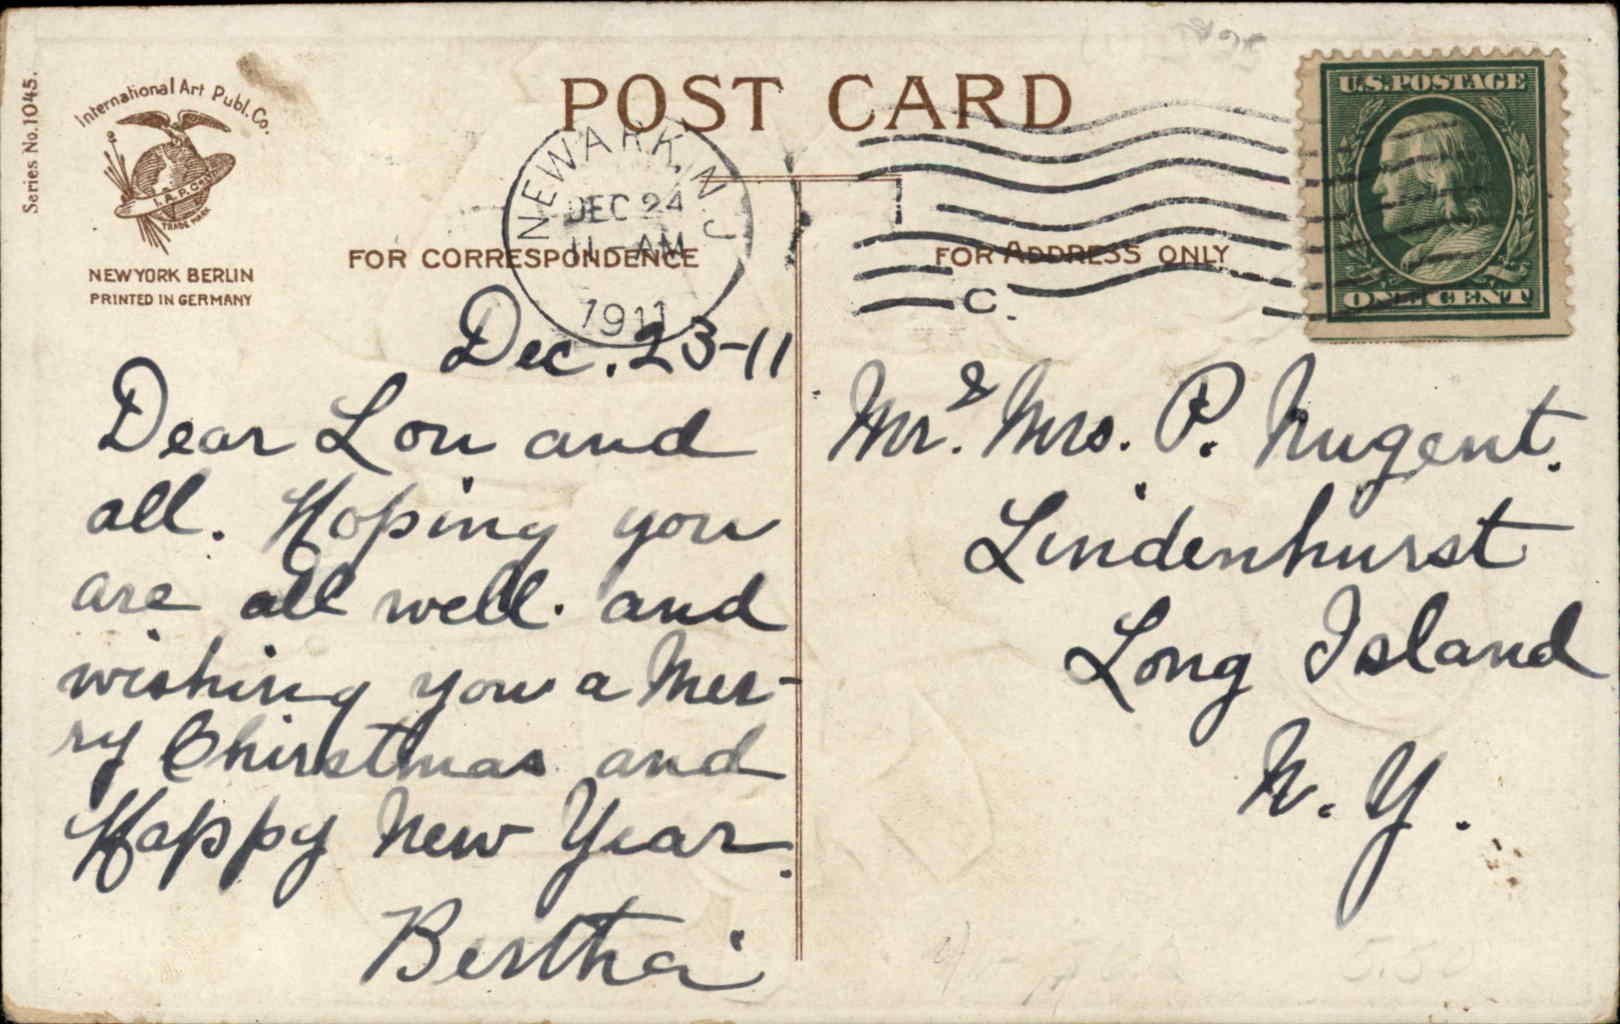 Series No. 1045.
International Art Publ. Co.
I. A. P. Co.
TRADE MARK
NEW YORK BERLIN
PRINTED IN GERMANY
POST CARD
FOR CORRESPONDENCE
FOR ADDRESS ONLY
NEWARK, N J
DEC 24
11 - AM
1911
C.
U.S. POSTAGE
ONE CENT
Dec. 23-11
Dear Lou and
all. Hoping you
are all well. and
wishing you a Mer-
ry Chirstmas and
Happy New Year.
Bertha
Mr. & Mrs. P. Nugent.
Lindenhurst
Long Island
N. Y.